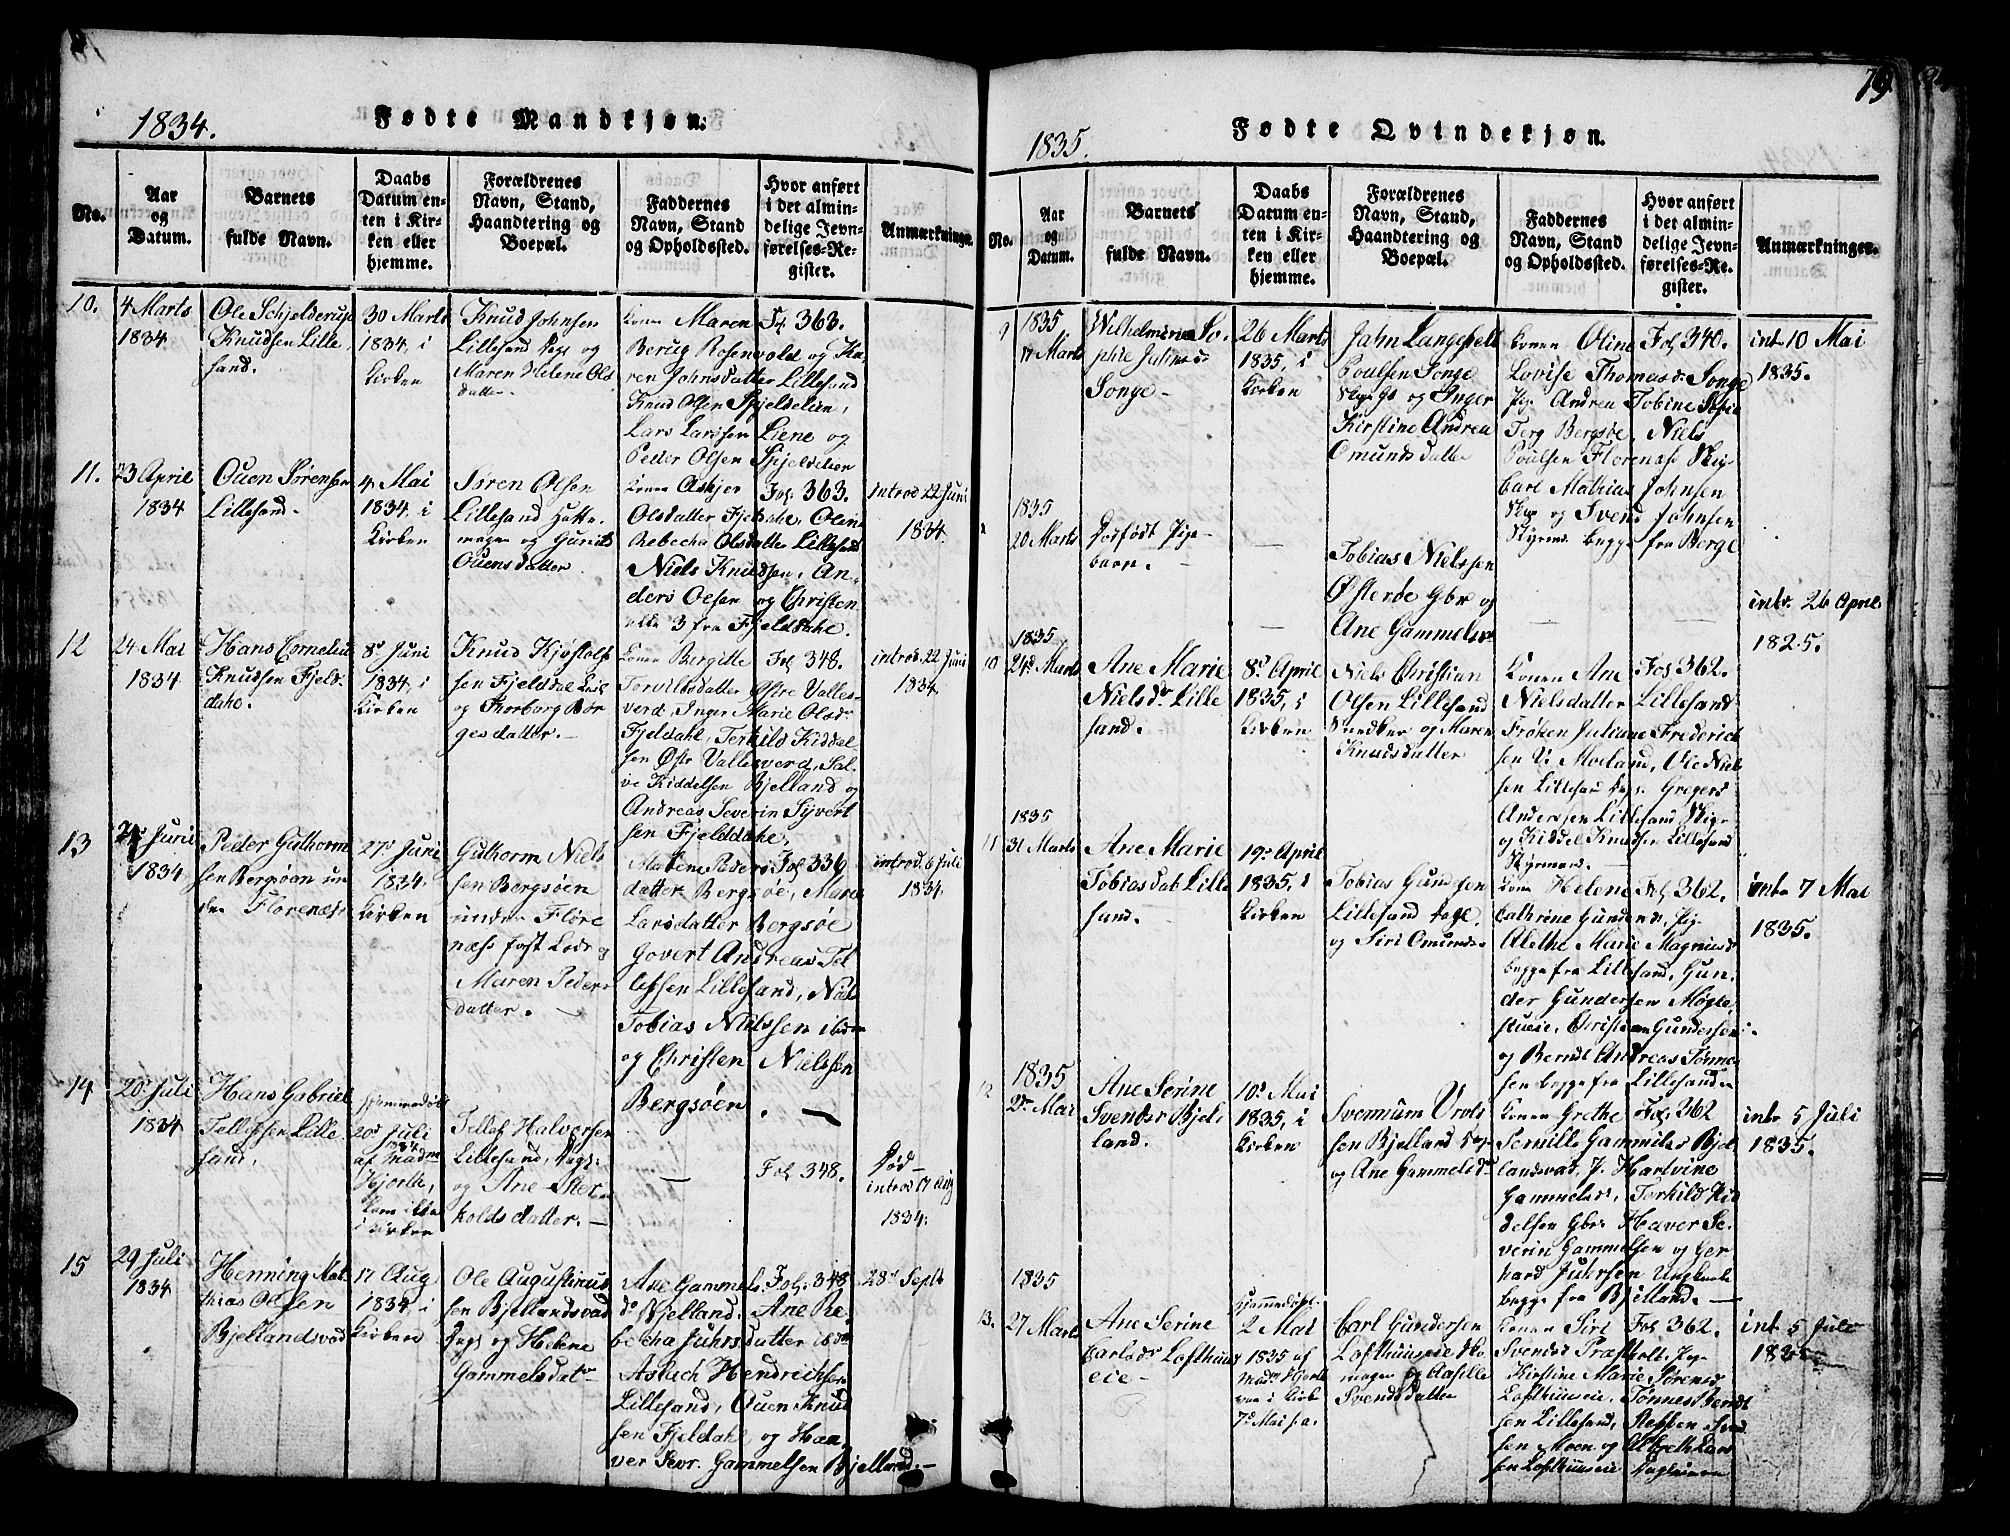 79
1834.
Fødte Mandkjøn.
No.
Aar
og
Datum.
Barnets
fulde Navn.
Daabs
Datum en-
ten i Kir-
ken eller
hjemme.
Forældrenes
Navn, Stand,
Haandtering og
Boepæl.
Faddernes
Navn, Stand
og Opholdssted.
Hvor anført
i det almin-
delige Jevn-
førelses-Re-
gister.
Anmærkninger.
10.
4 Marts
1834
Ole Schjelderup
Knudsen Lille
sand.
30 Marts
1834, i
Kirken
Knud Johnsen
Lillesand Dags og
Maren Helene Ols
datter.
Konen Maren
Berug Rosenvold og Ka
ren Johnsdatter Lillesand
Knud Olsen Spjeldelien,
Lars Larssen Liene og
Peder Olsen Spjeldelien
Fol 363.
11.
23 April
1834
Ouen Sørensen
Lillesand.
4 Mai
1834 i
Kirken
Søren Olsen
Lillesand Hatte
mager og Gunild
Ouensdatter
Konen Askjer
Olsdatter Fjeldahl, Oline
Rebecha Olsdatter Lillesand
Niels Knudsen, An
ders Olsen og Christen
alle 3 fra Fjelddahl.
Fol. 363.
introd 22 Juni
1834.
12
24 Mai
1834
Hans Cornelius
Knudsen Fjeld
dahl.
8d Juni
1834, i
Kirken
Knud Kjøstolf
sen Fjeldal
og Thorborg Bør
gesdatter.
Konen Bergitte
Torvildsdatter Østre Valles
verd, Inger Marie Olsdr
Fjeldahl, Terkild Kiddel
sen Østr Vallesverd, Sal
ve Kiddelsen Bjelland og
Andreas Severin Syvert
sen Fjelddahl.
Fol 348.
introd. 22 Juni
1834.
13
Juni
1834
Peder Guthorm
sen Bergsøen un
der Florenæs.
27d Juni
1834.
Kirken
Guthorm Niels
sen Bergsøen
under Flore
næss Lods og
Maren Peders
datter.
Maren Peders
datter Bergsøe, Maren
Larsdatter Bergsøe
Govert Andreas Tel
lefsen Lillesand, Niels
Tobias Nielssen ibdm
og Christen Nielssen
Bergsøen.
Fol 336
introd. 6 Juli
1834.
14
20d Juli
1834
Hans Gabriel
Tellefsen Lille
sand.
hjemmedøbt
20d Juli
1834
af Madm
Hjorth,
kom ikke
i Kirken
Tellef Halvorsen
Lillesand, Dags.
og Ane Ster
kolds datter.
Fol 348.
Død
introd 17 Aug
1834.
15
29 Juli
1834
Henning Mat
hias Olssen
Bjellandsvad
17 Aug
1834 i
Kirken
Ole Augustinus
sen Bjellandsvad
Dags og Helene
Gammelsdatr
Ane Gammels
dr Bjelland. Ane Re
becha Juhrsdatter ibdm
Aslach Hendrichsen
Lillesand, Ouen Knud
sen Fjeldahl og Haa
ver Sevr. Gammelsen Bjelland.
Fol. 348
28d Septb
1835.
Fødte Qvindekjøn.
No.
Aar
og
Datum.
Barnets
fulde Navn.
Daabs
Datum en-
ten i Kir-
ken eller
hjemme.
Forældrenes
Navn, Stand,
Haandtering og
Boepæl.
Faddernes
Navn, Stand
og Opholdssted.
Hvor anført
i det almin-
delige Jevn-
førelses-Re-
gister.
Anmærkninger.
9
1835
17 Marts
Wilhelmine So
phie Jahns
Songe
26 Marts
1835, i
Kirken
Jahn Langfeldt
Poulsen Songe
og Inger
Kirstine Andrea
Omunds datter
Konen Oline
Lovise Thomasd. Songe
Pige Andrea Tobine
Terg Bergsøe, Niels
Poulsen Florenæs
Carl Mathias Johnsen
og Svend Johnsen
Styrmd. begge fra Berge
Fol 340.
intr. 10 Mai
1835.
1835
20 Marts
Dødfødt Pige
barn.
Tobias Nielssen
Østerøe Gbr og
Ane Gammelsdr
intr. 26 April
1825.
10
1835
24d Marts
Ane Marie
Nielsdr Lille
sand.
8d April
1835, i
Kirken
Niels Christian
Olsen Lillesand
Snedker og Maren
Knudsdatter
Konen Ane
Nielsdatter Lillesand
Frøken Juliane Frederich
sen v. Moeland, Ole Niel
sen Lillesand Gregers
Andersen Lillesand
og Kiddel Knudsen Lillesand
Styrmend.
Fol 362.
11
1835
31 Marts
Ane Marie
Tobiasdatr Lille
sand.
19d April
1835, i
Kirken
Tobias Gundersen
Lillesand Dags
og Siri Omundsdr
Konen Helene
Cathrine Gundersd., Pig.
Alethe Marie Magnusd
begge fra Lillesand, Gun
der Gundersen Møgle
stueie, Christian Gundersen
og Berndt Andreas Tønnes
sen begge fra Lillesand
Fol 362.
intr 7 Mai
1835.
12
1835
2d Mai
Ane Serine
Svendsdr Bjel
land.
10d Mai
1835, i
Kirken
Svennum Urols
sen Bjelland
og Ane Gammelsdr
Konen Grethe
Pernille Gammelsdr Bjel
landsvad, P. Hartvine
Gammelsdr, Torkild Kid
delsen Gbr. Haaver Se
verin Gammelsen og Ger
hard Juhrsen Ungkarle
begge fra Bjelland.
Fol. 362
intr 5 Juli
1835.
13.
1835
27 Marts
Ane Serine
Carlsdr Lofthuus
eie
hjemmedøbt
2 Mai
1835 af
Madm Hjorth
var i Kirke
7d Mai s. a.
Carl Gundersen
Lofthuuseie Sko
mager og Aasille
Svendsdatter
Konen Siri
Svendsd Præstholt, Pige
Kirstine Marie Sørensd
Lofthuuseie, Tønnes Bendt
sen Lillesand, Steffen Svend
sen Moen og Albreth Lars
sen Lofthuuseie Ungkarle
Fol 362.
int. 5 Juli
1835